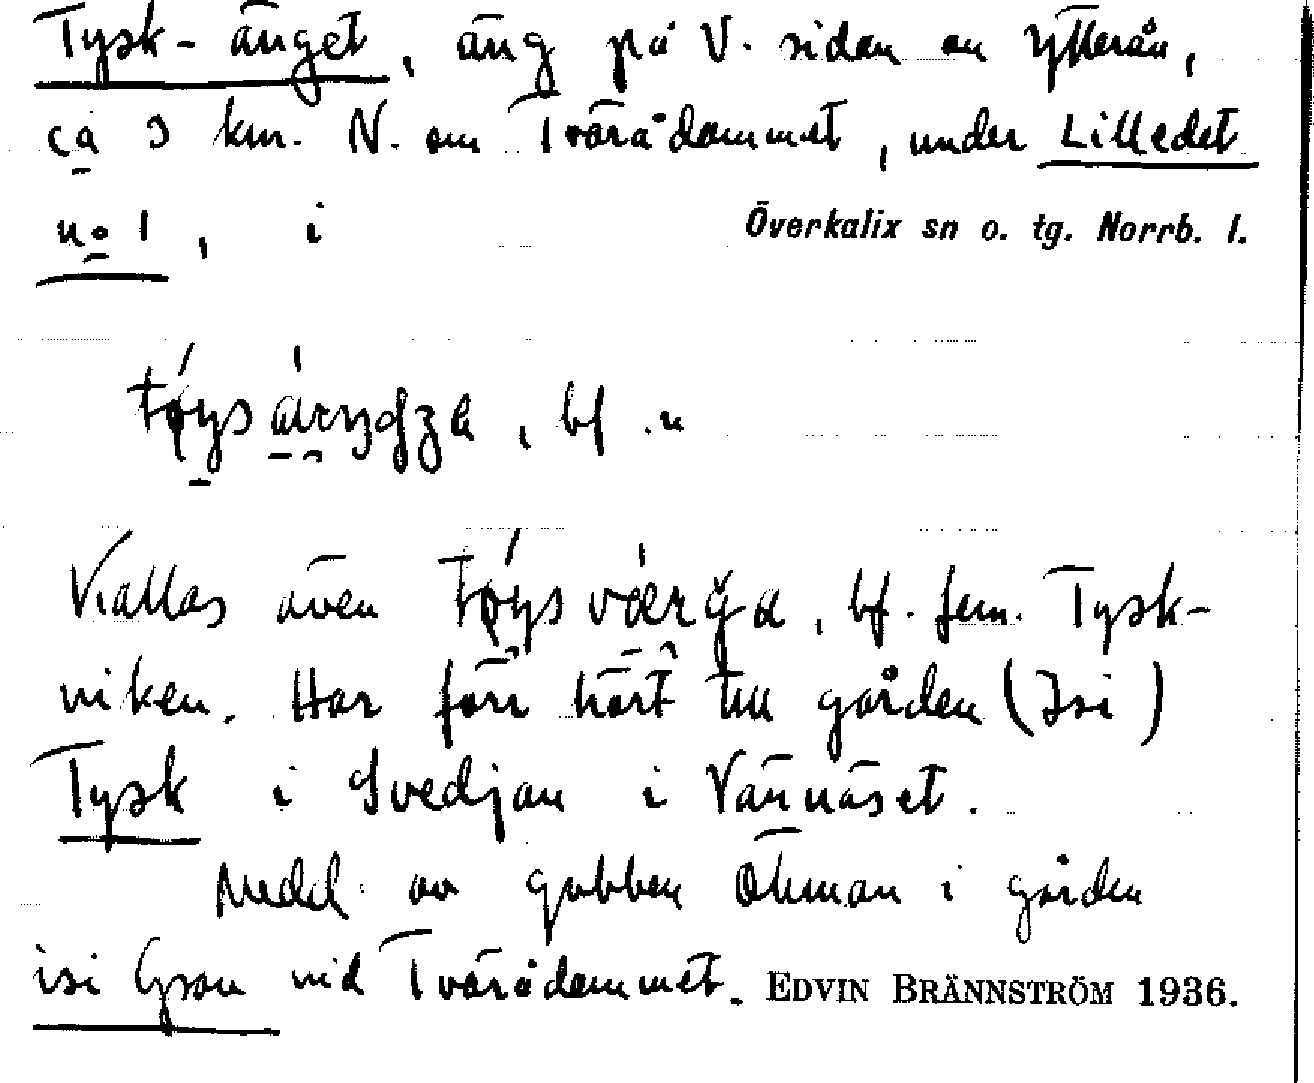 Tysk-änget, äng på V. sidan av Ytterån,
ca 3 km. N. om Tvärådammet, under Lilledet
no 1, i Överkalix sn o. tg. Norrb. l.
, bf .n
Kallas även , bf. fem. Tysk-
viken. Har förr hört till gården (Isi)
Tysk i Svedjan i Vännäset.
Medd. av gubben Öhman i gården
isi Gson vid Tvärådammet. EDVIN BRÄNNSTRÖM 1936.